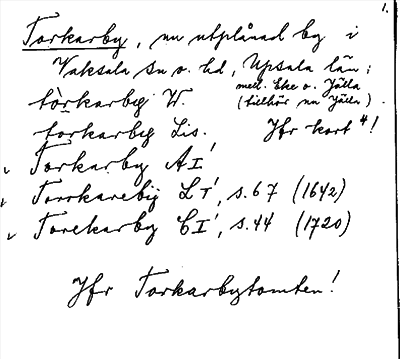 1.
Torkarby, nu utplånad by i
Vaksala sn o. hd, Upsala län;
mell. Eke o. Jälla
(tillhör nu Jälla).
tòrkarbÿ W.
torkarby Lis. Jfr kort 4!
v Torkarby AI'
v Torrkarebÿ LI', s. 67 (1642)
v Torekarby CI', s. 44 (1720)
Jfr Torkarbytomten!